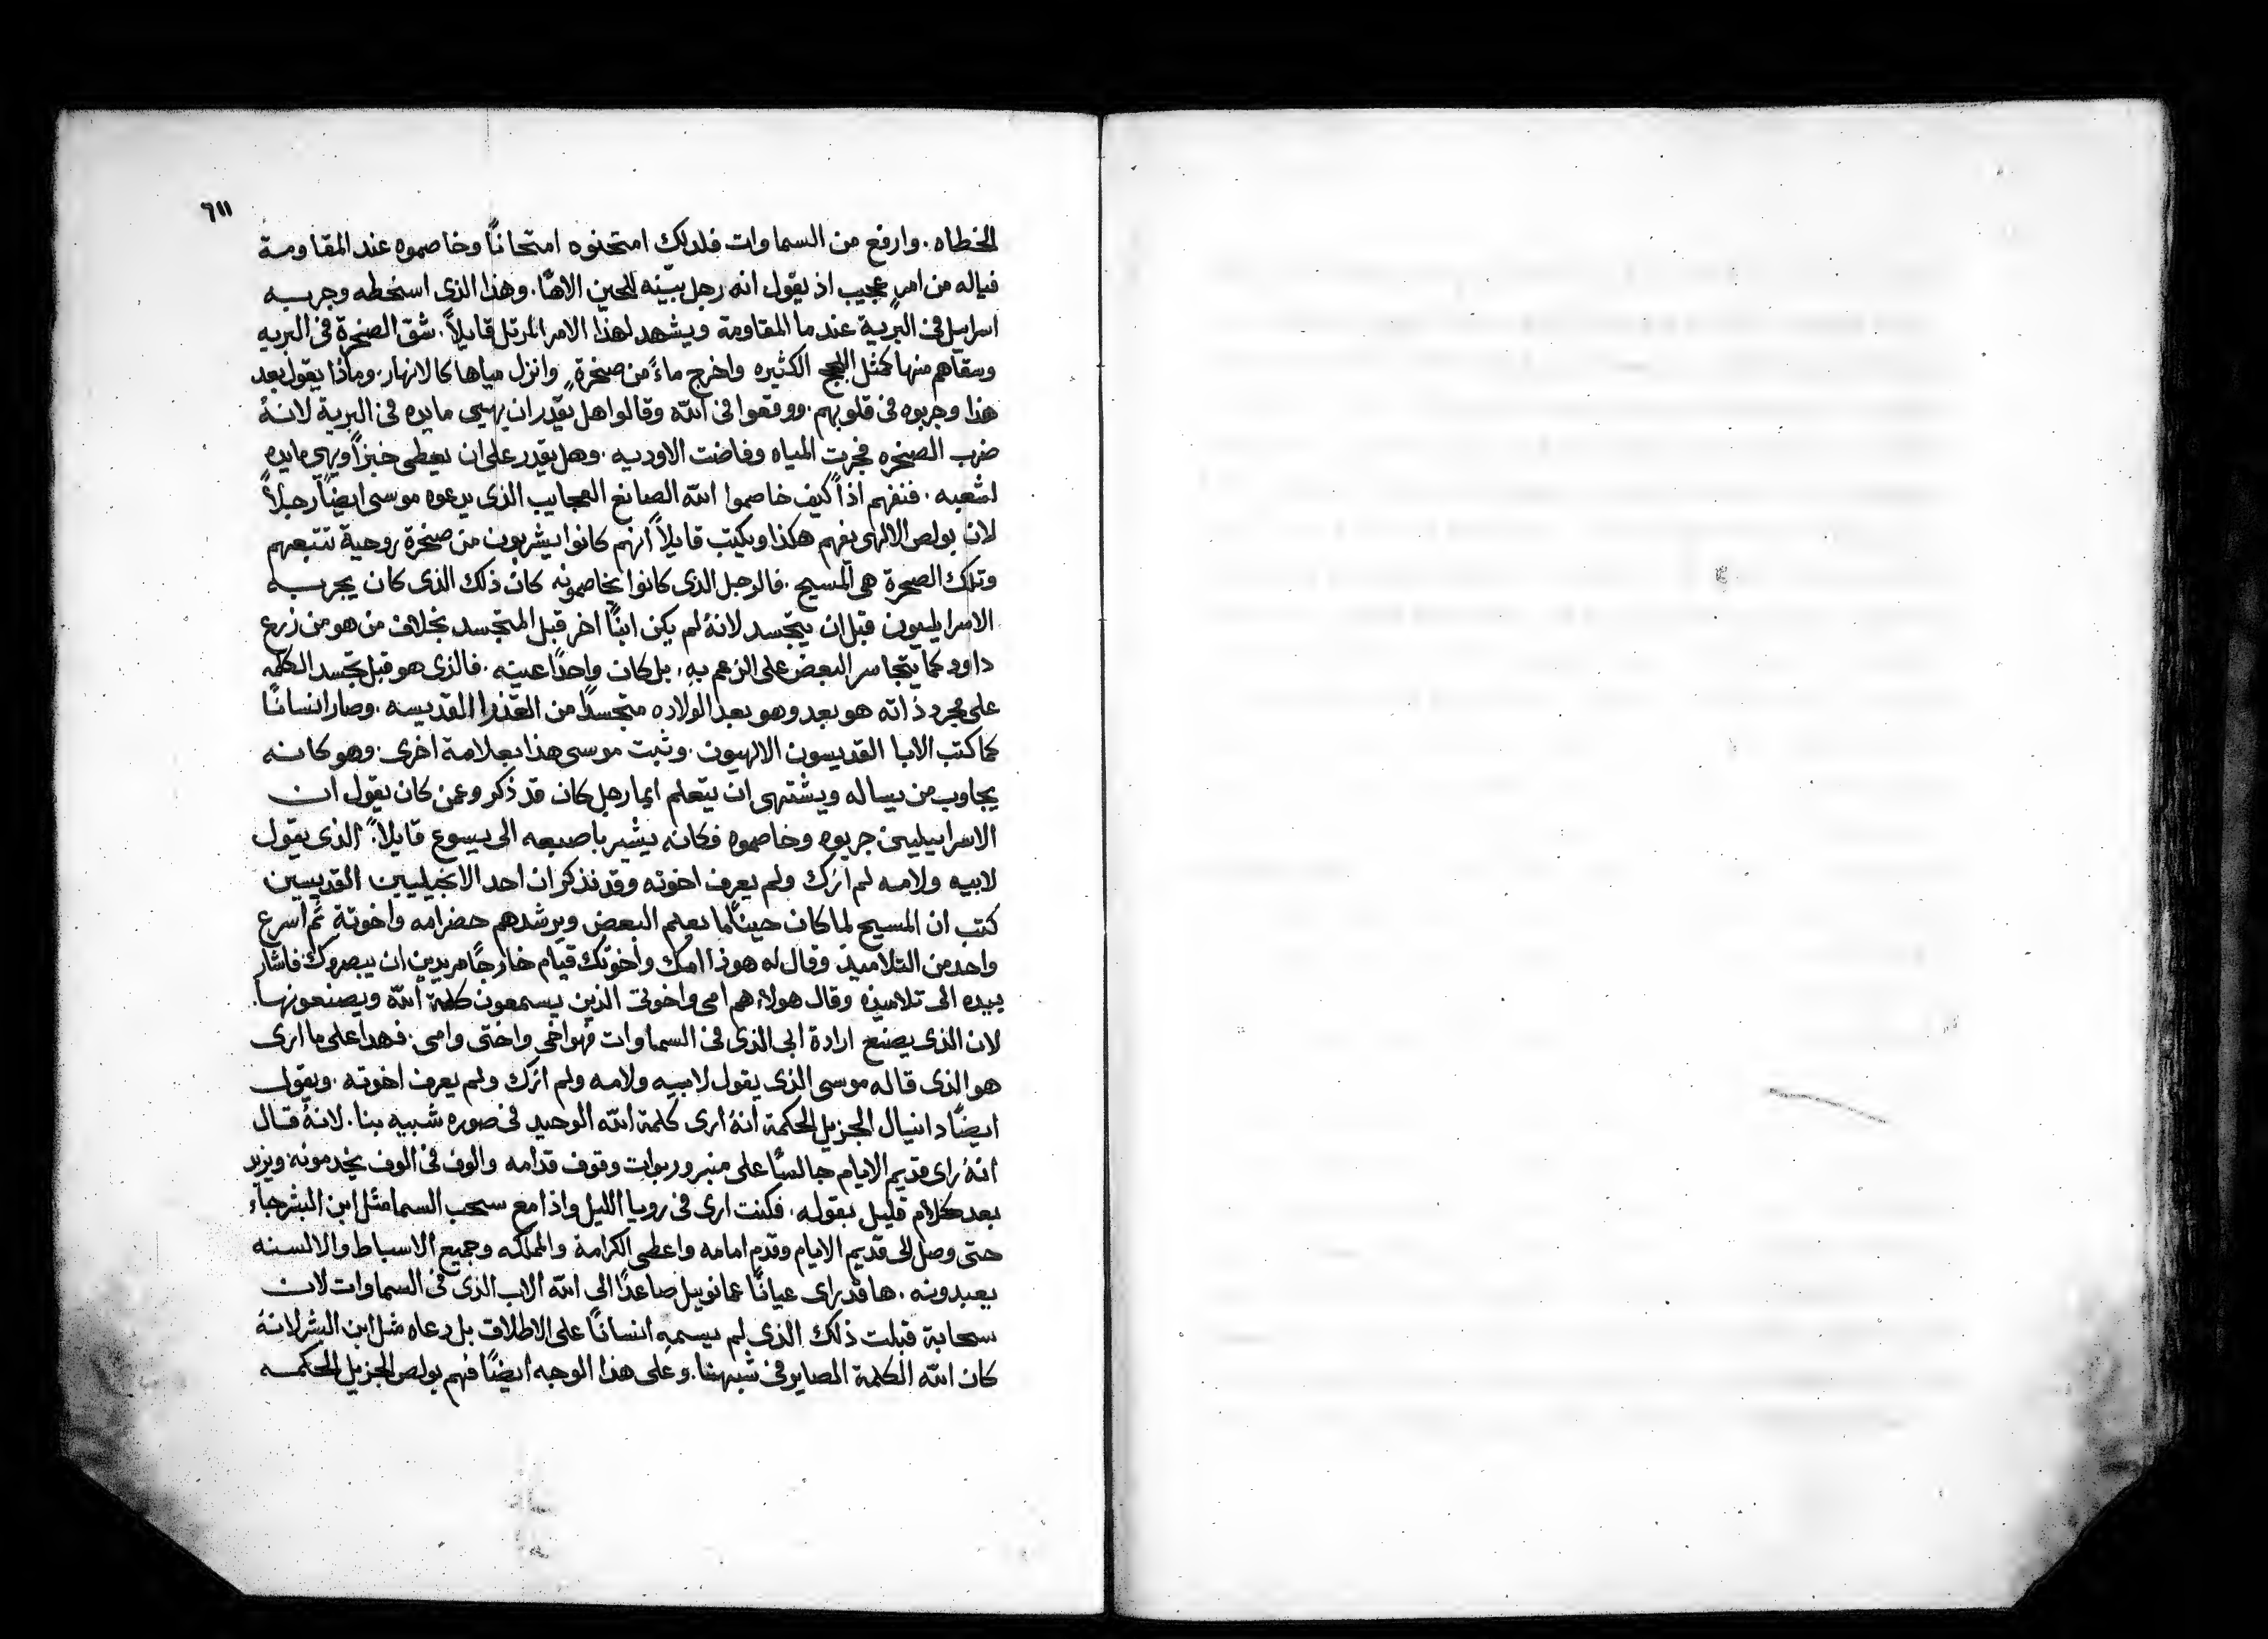 ٦١١
الخطاه. وارفع من السماوات فلدلك امتحنوه امتحانًا وخاصموه عند المقاومة
فياله من امرٍ عجيب اذ يقول انه رجل يبّينه للحين الاهًا. وهذا الذى اسخطه وجربه
اسراييل فى البرية عند ما المقاومة ويشهد لهذا الامر المرتل قايلاً. شق الصخرة فى البريه
وسقاهم منها كمثل اللجج الكثيره واخرج ماءً من صخرةٍ وانزل مياها كالانهار. وماذا يقول بعد
هذا وجربوه فى قلوبهم. ووقعوا فى الله وقالوا هل يقدر ان يهيى مايده فى البرية لانهُ
ضرب الصخره فجرت المياه وفاضت الاوديه. وهل يقدر على ان يعطى خبزًا ويهيى مايده
لشعبه. فنفهم اذاً كيف خاصموا الله الصانع العجايب الذى يدعوه موسى ايضًا رجلاً
لان بولص الالهى يفهم هكذا ويكتب قايلاً انهم كانوا يشربون من صخرة روحية تتبعهم
وتلك الصخرة هى المسيح. فالرجل الذى كانوا يخاصمونه كان ذلك الذى كان يجربه
الاسراييليون قبل ان يتجسد لانهُ لم يكن ابنًا اخر قبل المتجسد بخلاف من هو من زرع
داود كما يتجاسر البعض على الزعم به. بل كان واحدًا عينه. فالذى هو قبل تجسد الكلمه
على مجرد ذاته هو بعد وهو بعد الولاده متجسدًا من العذرا القديسه. وصار انسانًا
كما كتب الابا القديسون الالهيون. وثبت موسى هذا بعلامة اخرى. وهو كانه
يجاوب من يساله ويشتهى ان يتعلم ايما رجل كان قد ذكر وعمن كان يقول ان
الاسراييليين جربوه وخاصموه فكانه يشير باصبعه الى يسوع قايلاً. الذى يقول
لابيه ولامه لم ارك ولم يعرف اخوته وقد نذكر ان احد الانجيليين القديسين
كتب ان المسيح لما كان حينًا ما يعلم البعض ويرشدهم حضر امه واخوتة ثم اسرع
واحد من التلاميذ وقال له هوذا امك واخوتك قيام خارجًا مريدين ان يبصروك. فاشار
بيده الى تلاميذه وقال هولاء هم امى واخوتى الذين يسمعون كلمة الله ويصنعونها.
لان الذى يصنع ارادة ابى الذى فى السماوات فهو اخى واختى وامى. فهدا على ما ارى
هو الذى قاله موسى الذى يقول لابيه ولامه ولم ارك ولم يعرف اخوته. ويقول
ايضًا دانيال الجزيل الحكمة انهُ ارى كلمة الله الوحيد فى صوره شبيه بنا. لانهُ قال
انهُ راى قديم الايام جالسًا على منبر وربوات وقوف قدامه والوف فى الوف يخدمونه. ويزيد
بعد كلام قليل بقوله. فكنت ارى فى رويا الليل واذا مع سحب السما مثل ابن البشر جاء
حتى وصل الى قديم الايام وقدم امامه واعطى الكرامة والمملكه وجميع الاسباط والالسنه
يعبدونه. ها قد راى عيانًا عمانوييل صاعدًا الى الله الاب الذى فى السماوات لان
سحابة قبلت ذلك الذى لم يسمهِ انسانًا على الاطلاق بل دعاه مثل ابن البشر لانهُ
كان الله الكلمة الصاير فى شبهنا. وعلى هذا الوجه ايضًا فهم بولص الجزيل الحكمه